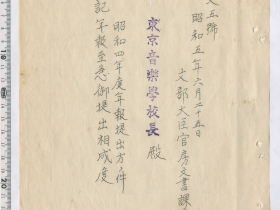 文五號
昭和五年六月二十五日
文部大臣官房文書課
東京音樂學校長 殿
昭和四年度年報提出方ノ件
記年報至急御提出相成度